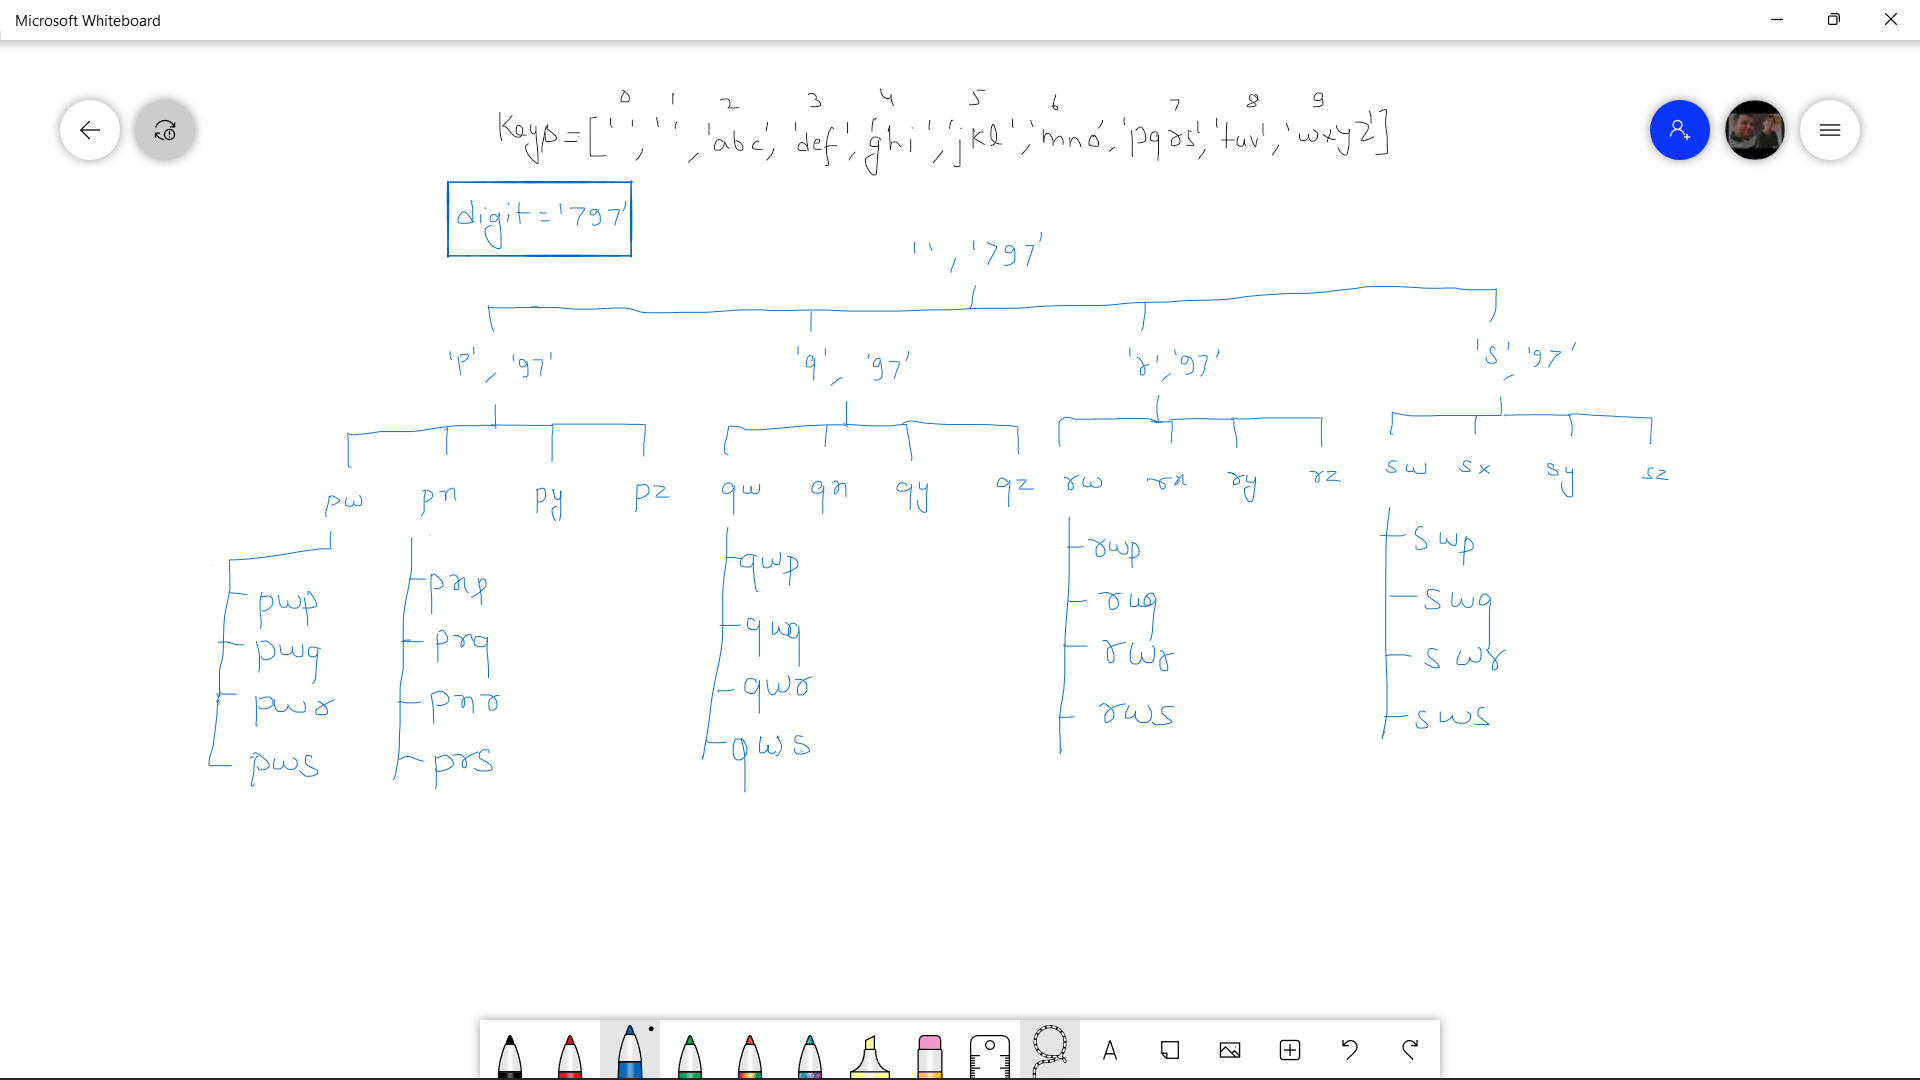 Microsoft Whiteboard
0 1 2 3 4 5 6 7 8 9
Keys=['','','abc','def','ghi','jkl','mno','pqrs','tuv','wxyz']
digit='797'
'','797'
'p','97' 'q','97' 'r','97' 's','97'
pw px py pz qw qx qy qz rw rx ry rz sw sx sy sz
pwp pxp qwp rwp swp
pwq pxq qwq rwq swq
pwr pxr qwr rwr swr
pws pxs qws rws sws
A